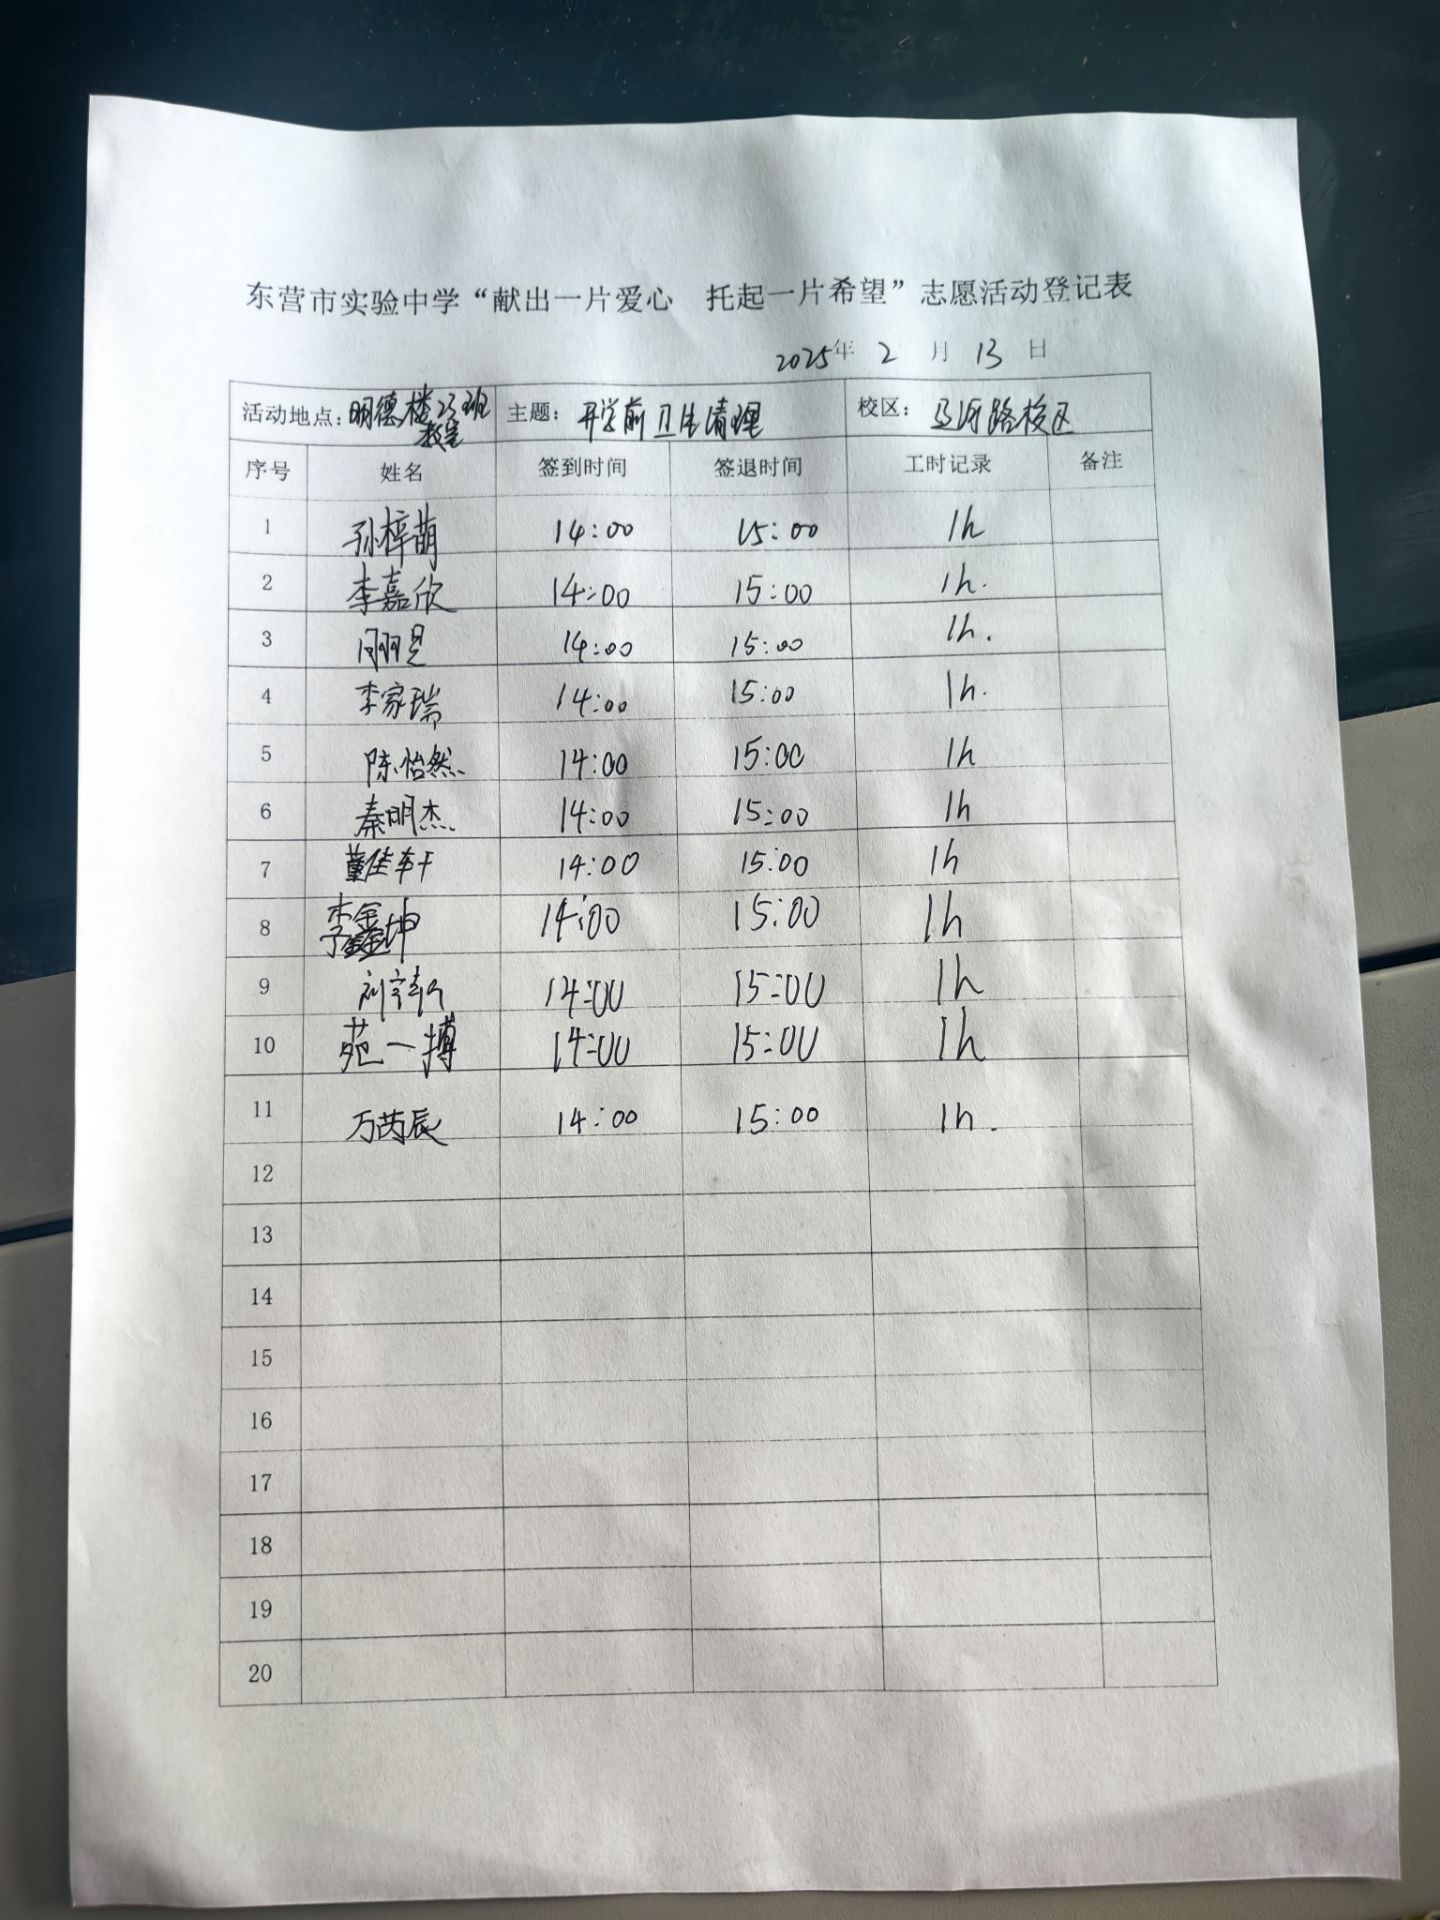 东营市实验中学“献出一片爱心 托起一片希望”志愿活动登记表
2025年 2 月 13 日
活动地点：明德楼23班教室 主题：开学前卫生清理 校区：路校区
序号 姓名 签到时间 签退时间 工时记录 备注
1 孙梓萌 14:00 15:00 1h
2 李嘉欣 14:00 15:00 1h.
3 14:00 15:00 1h.
4 李家瑞 14:00 15:00 1h.
5 陈怡然 14:00 15:00 1h
6 秦明杰 14:00 15:00 1h
7 董佳轩 14:00 15:00 1h
8 李鑫坤 14:00 15:00 1h
9 刘宇轩 14:00 15:00 1h
10 苑一搏 14:00 15:00 1h
11 万芮辰 14:00 15:00 1h.
12
13
14
15
16
17
18
19
20